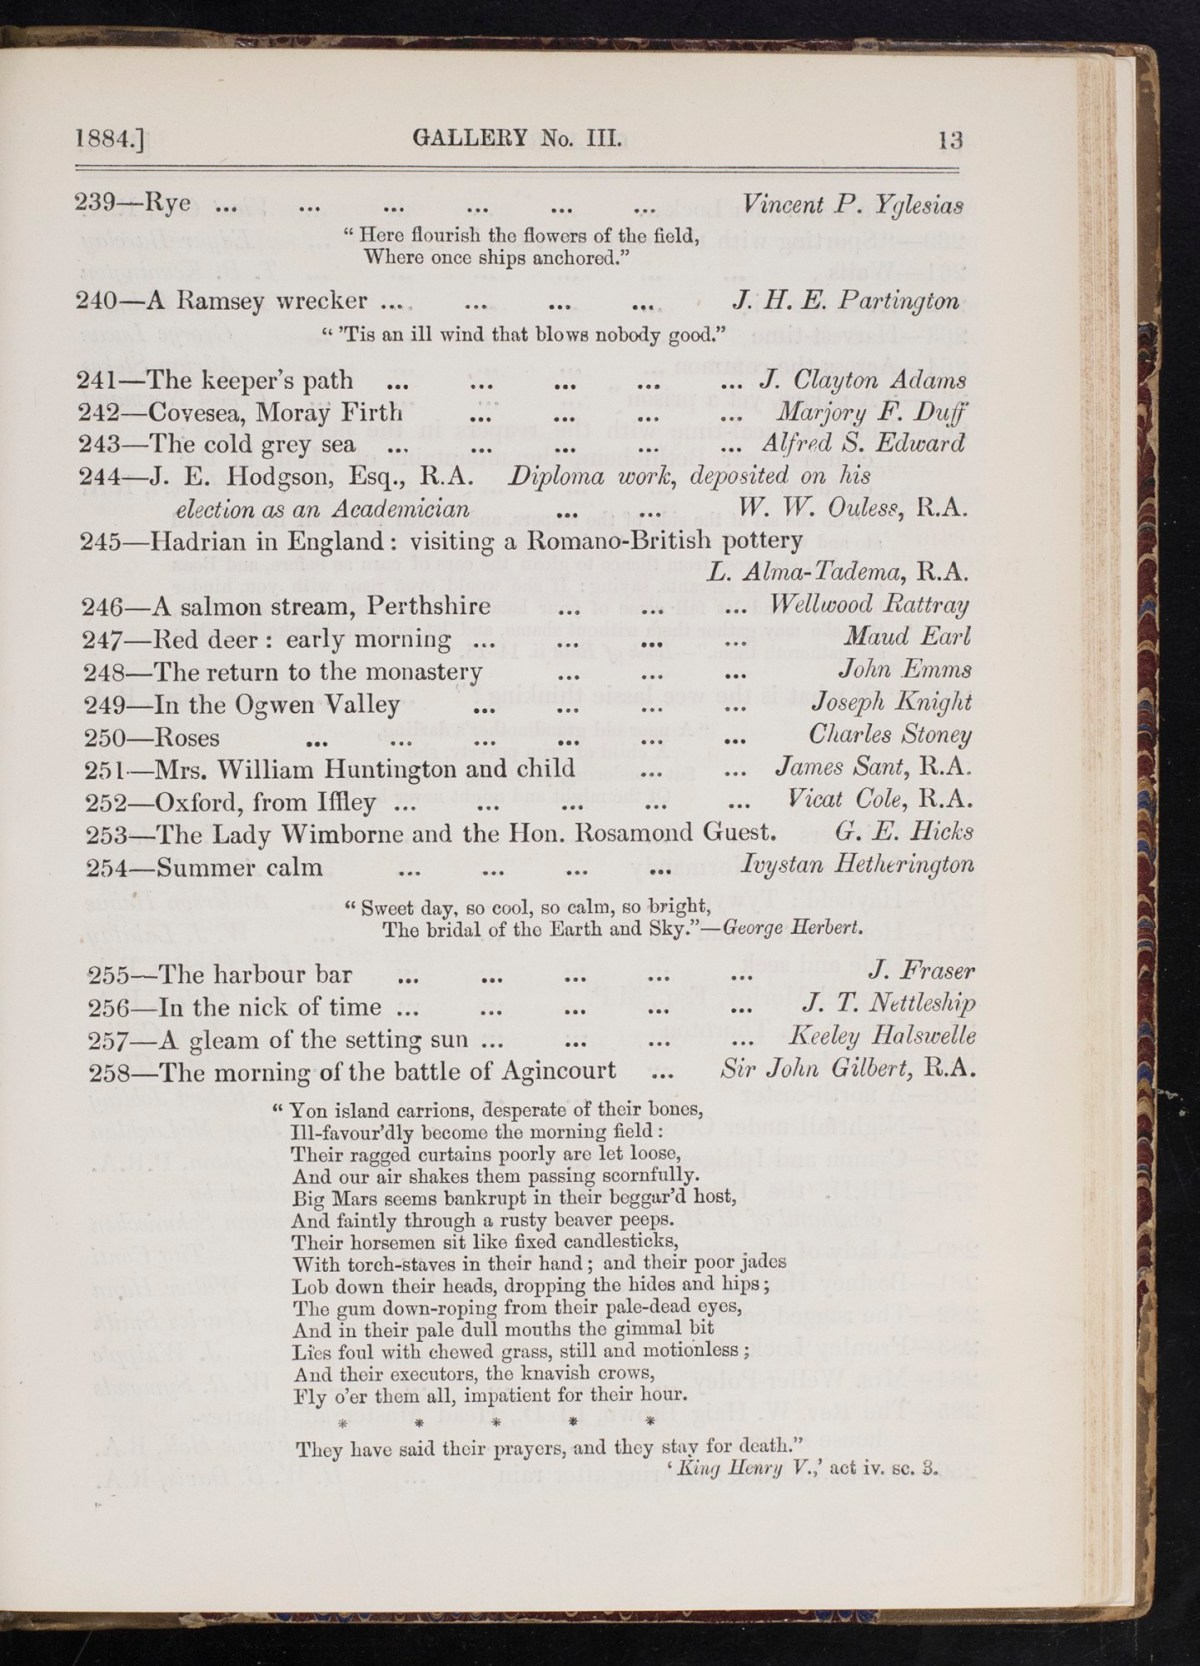 1884.] GALLERY No. III. 13
239—Rye ... ... ... ... ... ... Vincent P. Yglesias
“ Here flourish the flowers of the field,
Where once ships anchored.”
240—A Ramsey wrecker ... ... ... ... J. H. E. Partington
“ ’Tis an ill wind that blows nobody good.”
241—The keeper’s path ... ... ... ... ... J. Clayton Adams
242—Covesea, Moray Firth ... ... ... ... Marjory F. Duff
243—The cold grey sea ... ... ... ... ... Alfred S. Edward
244—J. E. Hodgson, Esq., R.A. Diploma work, deposited on his
election as an Academician ... ... W. W. Ouless, R.A.
245—Hadrian in England : visiting a Romano-British pottery
L. Alma-Tadema, R.A.
246—A salmon stream, Perthshire ... ... ... Wellwood Rattray
247—Red deer : early morning ... ... ... ... Maud Earl
248—The return to the monastery ... ... ... John Emms
249—In the Ogwen Valley ... ... ... ... Joseph Knight
250—Roses ... ... ... ... ... ... Charles Stoney
251—Mrs. William Huntington and child ... ... James Sant, R.A.
252—Oxford, from Iffley ... ... ... ... ... Vicat Cole, R.A.
253—The Lady Wimborne and the Hon. Rosamond Guest. G. E. Hicks
254—Summer calm ... ... ... ... Ivystan Hetherington
“ Sweet day, so cool, so calm, so bright,
The bridal of the Earth and Sky.”—George Herbert.
255—The harbour bar ... ... ... ... ... J. Fraser
256—In the nick of time ... ... ... ... ... J. T. Nettleship
257—A gleam of the setting sun ... ... ... ... Keeley Halswelle
258—The morning of the battle of Agincourt ... Sir John Gilbert, R.A.
“ Yon island carrions, desperate of their bones,
Ill-favour’dly become the morning field :
Their ragged curtains poorly are let loose,
And our air shakes them passing scornfully.
Big Mars seems bankrupt in their beggar’d host,
And faintly through a rusty beaver peeps.
Their horsemen sit like fixed candlesticks,
With torch-staves in their hand ; and their poor jades
Lob down their heads, dropping the hides and hips ;
The gum down-roping from their pale-dead eyes,
And in their pale dull mouths the gimmal bit
Lies foul with chewed grass, still and motionless ;
And their executors, the knavish crows,
Fly o’er them all, impatient for their hour.
* * * * *
They have said their prayers, and they stay for death.”
‘ King Henry V.,’ act iv. sc. 3.